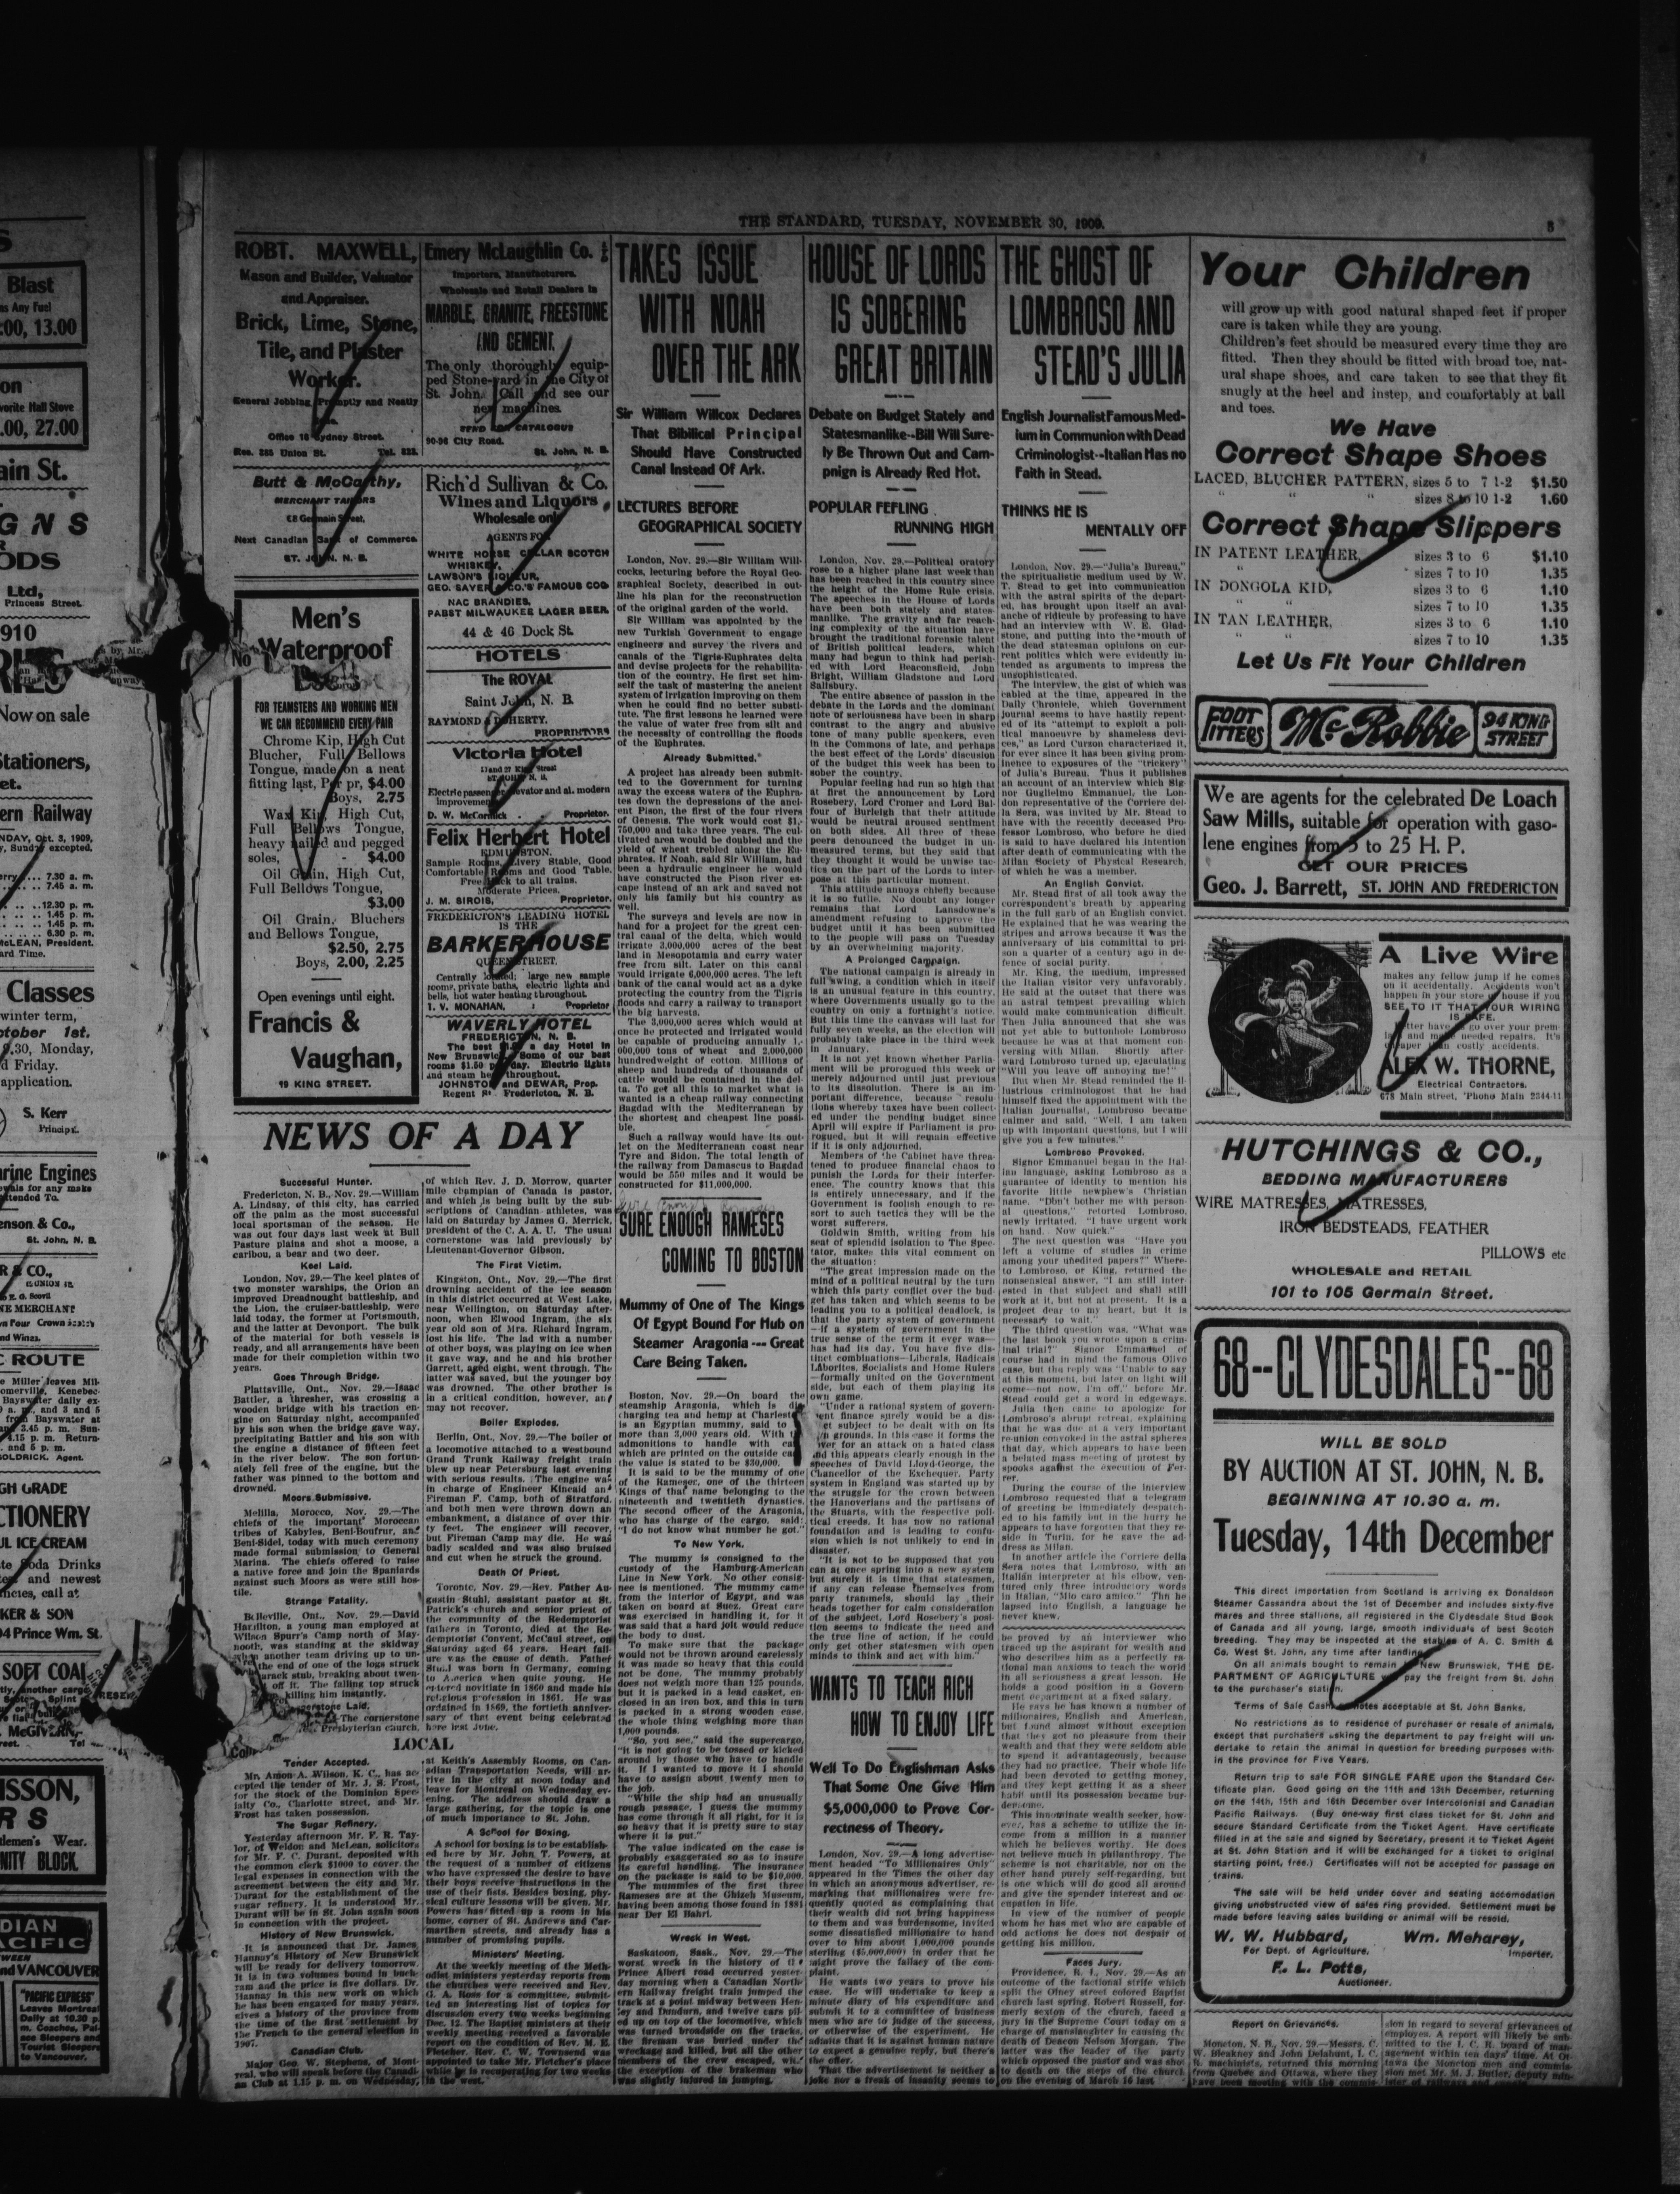 THE STANDARD, TUESDAY, NOVEMBER 30, 1909.
ROBT. MAXWELL,
Mason and Builder, Valuator
and Appraiser.
Brick, Lime, Stone,
Tile, and Plaster
Worker.
General Jobbing Promptly and Neatly
Office 16 Sydney Street.
Res. 385 Union St. Tel. 823.
Butt & McCarthy,
MERCHANT TAILORS
68 Germain Street,
Next Canadian Bank of Commerce
ST. JOHN. N. B.
Men's
Waterproof
FOR TEAMSTERS AND WORKING MEN
WE CAN RECOMMEND EVERY PAIR
Chrome Kip, High Cut
Blucher, Full Bellows
Tongue, made on a neat
fitting last, Per pr, $4.00
Boys, 2.75
Wax Kip, High Cut,
Full Bellows Tongue,
heavy nailed and pegged
soles, - $4.00
Oil Grain, High Cut,
Full Bellows Tongue,
$3.00
Oil Grain, Bluchers
and Bellows Tongue,
$2.50, 2.75
Boys, 2.00, 2.25
Open evenings until eight.
Francis &
Vaughan,
19 KING STREET.
Emery McLaughlin Co.
Importers, Manufacturers,
Wholesale and Retail Dealers in
MARBLE, GRANITE, FREESTONE
AND CEMENT,
The only thoroughly equip-
ped Stone-yard in the City of
St. John. Call and see our
new machines.
SEND FOR CATALOGUE
90-96 City Road. St. John, N. B.
Rich'd Sullivan & Co.
Wines and Liquors
Wholesale only
AGENTS FOR
WHITE HORSE CELLAR SCOTCH
WHISKEY,
LAWSON'S LIQUEUR,
GEO. SAYER & CO.'S FAMOUS COG-
NAC BRANDIES,
PABST MILWAUKEE LAGER BEER.
44 & 46 Dock St.
HOTELS
The ROYAL
Saint John, N. B.
RAYMOND & DOHERTY,
PROPRIETORS
Victoria Hotel
Electric passenger elevator and al. modern
improvements
D. W. McCormick - Proprietor.
Felix Herbert Hotel
EDMUNSTON.
Sample Rooms, Livery Stable, Good
Comfortable Rooms and Good Table.
Free Hack to all trains.
Moderate Prices.
J. M. SIROIS, Proprietor.
FREDERICTON'S LEADING HOTEL
IS THE
BARKER HOUSE
QUEEN STREET.
Centrally located; large new sample
rooms, private baths, electric lights and
bells, hot water heating throughout.
T. V. MONAHAN, Proprietor
WAVERLY HOTEL
FREDERICTON, N. B.
JOHNSTON and DEWAR, Prop.
Regent St. Fredericton, N. B.
NEWS OF A DAY
Successful Hunter.
Fredericton, N. B., Nov. 29.—William
A. Lindsay, of this city, has carried
off the palm as the most successful
local sportsman of the season. He
was out four days last week at Bull
Pasture plains and shot a moose, a
caribou, a bear and two deer.
Keel Laid.
London, Nov. 29.—The keel plates of
two monster warships, the Orion an
improved Dreadnought battleship, and
the Lion, the cruiser-battleship, were
laid today, the former at Portsmouth,
and the latter at Devonport. The bulk
of the material for both vessels is
ready, and all arrangements have been
made for their completion within two
years.
Goes Through Bridge.
Plattsville, Ont., Nov. 29.—Isaac
Battler, a thresher, was crossing a
wooden bridge with his traction en-
gine on Saturday night, accompanied
by his son when the bridge gave way,
precipitating Battler and his son with
the engine a distance of fifteen feet
in the river below. The son fortun-
ately fell free of the engine, but the
father was pinned to the bottom and
drowned.
Moors Submissive.
Melilla, Morocco, Nov. 29.—The
chiefs of the important Moroccan
tribes of Kabyles, Beni-Boufrur, and
Beni-Sidel, today with much ceremony
made formal submission to General
Marina. The chiefs offered to raise
a native force and join the Spaniards
against such Moors as were still hos-
tile.
Strange Fatality.
Belleville, Ont., Nov. 29.—David
Hamilton, a young man employed at
Wilson Spurr's Camp north of May-
nooth, was standing at the skidway
when another team driving up to un-
the end of one of the logs struck
stub, breaking about twen-
off it. The falling top struck
killing him instantly.
Cornerstone Laid.
The cornerstone
Presbyterian church,
of which Rev. J. D. Morrow, quarter
mile champian of Canada is pastor,
and which is being built by the sub-
scriptions of Canadian athletes, was
laid on Saturday by James G. Merrick,
president of the C. A. A. U. The usual
cornerstone was laid previously by
Lieutenant-Governor Gibson.
The First Victim.
Kingston, Ont., Nov. 29.—The first
drowning accident of the ice season
in this district occurred at West Lake,
near Wellington, on Saturday after-
noon, when Elwood Ingram, the six
year old son of Mrs. Richard Ingram,
lost his life. The lad with a number
of other boys, was playing on ice when
it gave way, and he and his brother
Garrett, aged eight, went through. The
latter was saved, but the younger boy
was drowned. The other brother is
in a critical condition, however, and
may not recover.
Boiler Explodes.
Berlin, Ont., Nov. 29.—The boiler of
a locomotive attached to a westbound
Grand Trunk Railway freight train
blew up near Petersburg last evening
with serious results. The engine was
in charge of Engineer Kincaid and
Fireman F. Camp, both of Stratford,
and both men were thrown down an
embankment, a distance of over thir-
ty feet. The engineer will recover,
but Fireman Camp may die. He was
badly scalded and was also bruised
and cut when he struck the ground.
Death Of Priest.
Toronto, Nov. 29.—Rev. Father Au-
gustin Stuhl, assistant pastor at St.
Patrick's church and senior priest of
the community of the Redemptorist
fathers in Toronto, died at the Re-
demptorist Convent, McCaul street, on
Saturday aged 64 years. Heart fail-
ure was the cause of death. Father
Stuhl was born in Germany, coming
to America when quite young. He
entered novitiate in 1860 and made his
religious profession in 1861. He was
ordained in 1869, the fortieth anniver-
sary of that event being celebrated
here last June.
LOCAL
Tender Accepted.
Mr. Amon A. Wilson, K. C., has ac-
cepted the tender of Mr. J. S. Frost,
for the stock of the Dominion Spec-
ialty Co., Charlotte street, and Mr.
Frost has taken possession.
The Sugar Refinery.
Yesterday afternoon Mr. F. R. Tay-
lor, of Weldon and McLean, solicitors
for Mr. F. C. Durant, deposited with
the common clerk $1000 to cover the
legal expenses in connection with the
agreement between the city and Mr.
Durant for the establishment of the
sugar refinery. It is understood Mr.
Durant will be in St. John again soon
in connection with the project.
History of New Brunswick.
It is announced that Dr. James
Hannay's History of New Brunswick
will be ready for delivery tomorrow.
It is in two volumes bound in buck-
ram and the price is five dollars. Dr.
Hannay in this new work on which
he has been engaged for many years,
gives a history of the province from
the time of the first settlement by
the French to the general election in
1907.
Canadian Club.
Major Geo. W. Stephens, of Mont-
real, who will speak before the Canadi-
an Club at 1.15 p. m. on Wednesday,
at Keith's Assembly Rooms, on Can-
adian Transportation Needs, will ar-
rive in the city at noon today and
leave for Montreal on Wednesday ev-
ening. The address should draw a
large gathering, for the topic is one
of much importance to St. John.
A School for Boxing.
A school for boxing is to be establish-
ed here by Mr. John T. Powers, at
the request of a number of citizens
who have expressed the desire to have
their boys receive instructions in the
use of their fists. Besides boxing, phy-
sical culture lessons will be given. Mr.
Powers has fitted up a room in his
home, corner of St. Andrews and Car-
marthen streets, and already has a
number of promising pupils.
Ministers' Meeting.
At the weekly meeting of the Meth-
odist ministers yesterday reports from
the churches were received and Rev.
G. A. Ross for a committee, submit-
ted an interesting list of topics for
discussion every two weeks beginning
Dec. 12. The Baptist ministers at their
weekly meeting received a favorable
report on the condition of Rev. M. E.
Fletcher. Rev. C. W. Townsend was
appointed to take Mr. Fletcher's place
while he is recuperating for two weeks
in the west.
TAKES ISSUE
WITH NOAH
OVER THE ARK
Sir William Willcox Declares
That Bibilical Principal
Should Have Constructed
Canal Instead Of Ark.
LECTURES BEFORE
GEOGRAPHICAL SOCIETY
London, Nov. 29.—Sir William Will-
cocks, lecturing before the Royal Geo-
graphical Society, described in out-
line his plan for the reconstruction
of the original garden of the world.
Sir William was appointed by the
new Turkish Government to engage
engineers and survey the rivers and
canals of the Tigris-Euphrates delta
and devise projects for the rehabilita-
tion of the country. He first set him-
self the task of mastering the ancient
system of irrigation improving on them
when he could find no better substi-
tute. The first lessons he learned were
the value of water free from silt and
the necessity of controlling the floods
of the Euphrates.
Already Submitted.
A project has already been submit-
ted to the Government for turning
away the excess waters of the Euphra-
tes down the depressions of the anci-
ent Pison, the first of the four rivers
of Genesis. The work would cost $1,-
750,000 and take three years. The cul-
tivated area would be doubled and the
yield of wheat trebled along the Eu-
phrates. If Noah, said Sir William, had
been a hydraulic engineer he would
have constructed the Pison river es-
cape instead of an ark and saved not
only his family but his country as
well.
The surveys and levels are now in
hand for a project for the great cen-
tral canal of the delta, which would
irrigate 3,000,000 acres of the best
land in Mesopotamia and carry water
free from silt. Later on this canal
would irrigate 6,000,000 acres. The left
bank of the canal would act as a dyke
protecting the country from the Tigris
floods and carry a railway to transport
the big harvests.
The 3,000,000 acres which would at
once be protected and irrigated would
be capable of producing annually 1,-
000,000 tons of wheat and 2,000,000
hundredweight of cotton. Millions of
sheep and hundreds of thousands of
cattle would be contained in the del-
ta. To get all this to market what is
wanted is a cheap railway connecting
Bagdad with the Mediterranean by
the shortest and cheapest line possi-
ble.
Such a railway would have its out-
let on the Mediterranean coast near
Tyre and Sidon. The total length of
the railway from Damascus to Bagdad
would be 550 miles and it would be
constructed for $11,000,000.
SURE ENOUGH RAMESES
COMING TO BOSTON
Mummy of One of The Kings
Of Egypt Bound For Hub on
Steamer Aragonia --- Great
Care Being Taken.
Boston, Nov. 29.—On board the
steamship Aragonia, which is dis-
charging tea and hemp at Charlest
is an Egyptian mummy, said to
more than 3,000 years old. With
admonitions to handle with ca
which are printed on the outside ca
the value is stated to be $30,000.
It is said to be the mummy of one
of the Rameses, one of the thirteen
Kings of that name belonging to the
nineteenth and twentieth dynasties.
The second officer of the Aragonia,
who has charge of the cargo, said:
"I do not know what number he got."
To New York.
The mummy is consigned to the
custody of the Hamburg-American
Line in New York. No other consig-
nee is mentioned. The mummy came
from the interior of Egypt, and was
taken on board at Suez. Great care
was exercised in handling it, for it
was said that a hard jolt would reduce
the body to dust.
To make sure that the package
would not be thrown around carelessly
it was made so heavy that this could
not be done. The mummy probably
does not weigh more than 125 pounds,
but it is packed in a lead casket, en-
closed in an iron box, and this in turn
is packed in a strong wooden case,
the whole thing weighing more than
1,000 pounds.
"So, you see," said the supercargo,
"it is not going to be tossed or kicked
around by those who have to handle
it. If I wanted to move it I should
have to assign about twenty men to
the job.
"While the ship had an unusually
rough passage, I guess the mummy
has come through it all right, for it is
so heavy that it is pretty sure to stay
where it is put."
The value indicated on the case is
probably exaggerated so as to insure
its careful handling. The insurance
on the package is said to be $10,000.
The mummies of the first three
Rameses are at the Ghizeh Museum,
having been among those found in 1881
near Der El Bahri.
Wreck in West.
Saskatoon, Sask., Nov. 29.—The
worst wreck in the history of the
Prince Albert road occurred yester-
day morning when a Canadian North-
ern Railway freight train jumped the
track at a point midway between Hen-
ley and Dundurn, and twelve cars pil-
ed up on top of the locomotive, which
was turned broadside on the tracks,
the fireman was buried under the
wreckage and killed, but all the other
members of the crew escaped, with
the exception of the brakeman who
was slightly injured in jumping.
HOUSE OF LORDS
IS SOBERING
GREAT BRITAIN
Debate on Budget Stately and
Statesmanlike--Bill Will Sure-
ly Be Thrown Out and Cam-
pnign is Already Red Hot.
POPULAR FEFLING
RUNNING HIGH
London, Nov. 29.—Political oratory
rose to a higher plane last week than
has been reached in this country since
the height of the Home Rule crisis.
The speeches in the House of Lords
have been both stately and states-
manlike. The gravity and far reach-
ing complexity of the situation have
brought the traditional forensic talent
of British political leaders, which
many had begun to think had perish-
ed with Lord Beaconsfield, John
Bright, William Gladstone and Lord
Salisbury.
The entire absence of passion in the
debate in the Lords and the dominant
note of seriousness have been in sharp
contrast to the angry and abusive
tone of many public speakers, even
in the Commons of late, and perhaps
the best effect of the Lords' discussion
of the budget this week has been to
sober the country.
Popular feeling had run so high that
at first the announcement by Lord
Rosebery, Lord Cromer and Lord Bal-
four of Burleigh that their attitude
would be neutral aroused sentiment
on both sides. All three of these
peers denounced the budget in un-
measured terms, but they said that
they thought it would be unwise tac-
tics on the part of the Lords to inter-
pose at this particular moment.
This attitude annoys chiefly because
it is so futile. No doubt any longer
remains that Lord Lansdowne's
amendment refusing to approve the
budget until it has been submitted
to the people will pass on Tuesday
by an overwhelming majority.
A Prolonged Campaign.
The national campaign is already in
full swing, a condition which in itself
is an unusual feature in this country,
where Governments usually go to the
country on only a fortnight's notice.
But this time the canvass will last for
fully seven weeks, as the election will
probably take place in the third week
in January.
It is not yet known whether Parlia-
ment will be prorogued this week or
merely adjourned until just previous
to its dissolution. There is an im-
portant difference, because resolu-
tions whereby taxes have been collect-
ed under the pending budget since
April will expire if Parliament is pro-
rogued, but it will remain effective
if it is only adjourned.
Members of the Cabinet have threa-
tened to produce financial chaos to
punish the Lords for their interfer-
ence. The country knows that this
is entirely unnecessary, and if the
Government is foolish enough to re-
sort to such tactics they will be the
worst sufferers.
Goldwin Smith, writing from his
seat of splendid isolation to The Spec-
tator, makes this vital comment on
the situation:
"The great impression made on the
mind of a political neutral by the turn
which this party conflict over the bud-
get has taken and which seems to be
leading you to a political deadlock, is
that the party system of government
—if a system of government in the
true sense of the term it ever was—
has had its day. You have five dis-
tinct combinations—Liberals, Radicals
LAborites, Socialists and Home Rulers
—formally united on the Government
side, but each of them playing its
own game.
"Under a rational system of govern-
ment finance surely would be a dis-
subject to be dealt with on its
own grounds. In this case it forms the
cover for an attack on a hated class
and this appears clearly enough in the
speeches of David Lloyd-George, the
Chancellor of the Exchequer. Party
system in England was started up by
the struggle for the crown between
the Hanoverians and the partisans of
the Stuarts, with the respective poli-
tical creeds. It has now no rational
foundation and is leading to confu-
sion which is not unlikely to end in
disaster.
"It is not to be supposed that you
can at once spring into a new system
but surely it is time that statesmen,
if any can release themselves from
party trammels, should lay their
heads together for calm consideration
of the subject. Lord Rosebery's posi-
tion seems to indicate the need and
the true line of action, if he could
only get other statesmen with open
minds to think and act with him."
WANTS TO TEACH RICH
HOW TO ENJOY LIFE
Well To Do Englishman Asks
That Some One Give Him
$5,000,000 to Prove Cor-
rectness of Theory.
London, Nov. 29.—A long advertise-
ment headed "To Millionaires Only"
appeared in the Times the other day
in which an anonymous advertiser, re-
marking that millionaires were fre-
quently quoted as complaining that
their wealth did not bring happiness
to them and was burdensome, invited
some dissatisfied millionaire to hand
over to him about 1,000,000 pounds
sterling ($5,000,000) in order that he
might prove the fallacy of the com-
plaint.
He wants two years to prove his
case. He will undertake to keep a
minute diary of his expenditure and
submit it to a committee of business
men who are to judge of the success,
or otherwise of the experiment. He
admits that it is against human nature
to expect a genuine reply, but there's
the offer.
That the advertisement is neither a
joke nor a freak of insanity seems to
THE GHOST OF
LOMBROSO AND
STEAD'S JULIA
English Journalist Famous Med-
ium in Communion with Dead
Criminologist--Italian Has no
Faith in Stead.
THINKS HE IS
MENTALLY OFF
London, Nov. 29.—"Julia's Bureau,"
the spiritualistic medium used by W.
T. Stead to get into communication
with the astral spirits of the depart-
ed, has brought upon itself an aval-
anche of ridicule by professing to have
had an interview with W. E. Glad-
stone, and putting into the mouth of
the dead statesman opinions on cur-
rent politics which were evidently in-
tended as arguments to impress the
unsophisticated.
The interview, the gist of which was
cabled at the time, appeared in the
Daily Chronicle, which Government
journal seems to have hastily repent-
ed of its "attempt to exploit a poli-
tical manoeuvre by shameless devi-
ces," as Lord Curzon characterized it,
for ever since it has been giving prom-
inence to exposures of the "trickery"
of Julia's Bureau. Thus it publishes
an account of an interview which Sig-
nor Guglielmo Emmanuel, the Lon-
don representative of the Corriere del-
la Sera, was invited by Mr. Stead to
have with the recently deceased Pro-
fessor Lombroso, who before he died
is said to have declared his intention
after death of communicating with the
Milan Society of Physical Research,
of which he was a member.
An English Convict.
Mr. Stead first of all took away the
correspondent's breath by appearing
in the full garb of an English convict.
He explained that he was wearing the
stripes and arrows because it was the
anniversary of his committal to pri-
son a quarter of a century ago in de-
fence of social purity.
Mr. King, the medium, impressed
the Italian visitor very unfavorably.
He said at the outset that there was
an astral tempest prevailing which
would make communication difficult.
Then Julia announced that she was
not yet able to buttonhole Lombroso
because he was at that moment con-
versing with Milan. Shortly after
ward Lombroso turned up, ejaculating
"Will you leave off annoying me!"
But when Mr. Stead reminded the il-
lustrious criminologist that he had
himself fixed the appointment with the
Italian journalist, Lombroso became
calmer and said, "Well, I am taken
up with important questions, but I will
give you a few minutes."
Lombroso Provoked.
Signor Emmanuel began in the Ital-
ian language, asking Lombroso as a
guarantee of identity to mention his
favorite little newphew's Christian
name. "Don't bother me with person-
al questions," retorted Lombroso,
newly irritated. "I have urgent work
on hand. Now quick."
The next question was "Have you
left a volume of studies in crime
among your unedited papers?" Where-
to Lombroso, or King, returned the
nonsensical answer, "I am still inter-
ested in that subject and shall still
work at it, but not at present. It is a
project dear to my heart, but it is
necessary to wait."
The third question was, "What was
the last book you wrote upon a crim-
inal trial?" Signor Emmanuel of
course had in mind the famous Olivo
case, but the reply was "Unable to say
at this moment, but later on light will
come—not now, I'm off," before Mr.
Stead could get a word in edgeways.
Julia then came to apologize for
Lombroso's abrupt retreat, explaining
that he was due at a very important
re-union convoked in the astral spheres
that day, which appears to have been
a belated mass meeting of protest by
spooks against the execution of Fer-
rer.
During the course of the interview
Lombroso requested that a telegram
of greeting be immediately despatch-
ed to his family but in the hurry he
appears to have forgotten that they re-
side in Turin, for he gave the ad-
dress as Milan.
In another article the Corriere della
Sera notes that Lombroso, with an
Italian interpreter at his elbow, ven-
tured only three introductory words
in Italian, "Mio caro amico." Thn he
lapsed into English, a language he
never knew.
be proved by an interviewer who
traced up the aspirant for wealth and
who describes him as a perfectly ra-
tional man anxious to teach the world
in all seriousness a great lesson. He
holds a good position in a Govern-
ment department at a fixed salary.
He says he has known a number of
millionaires, English and American,
but found almost without exception
that they got no pleasure from their
wealth and that they were seldom able
to spend it advantageously, because
they had no practice. Their whole life
had been devoted to getting money,
and they kept getting it as a sheer
habit until its possession became bur-
densome.
This innominate wealth seeker, how-
ever, has a scheme to utilize the in-
come from a million in a manner
which he believes worthy. He does
not believe much in philanthropy. The
scheme is not charitable, nor on the
other hand purely self-regarding, but
is one which will do good all around
and give the spender interest and oc-
cupation in life.
In view of the number of people
whom he has met who are capable of
odd actions he does not despair of
getting his million.
Faces Jury.
Providence, R. I., Nov. 29.—As an
outcome of the factional strife which
split the Olney street colored Baptist
church last spring, Robert Russell, for-
merly sexton of the church, faced a
jury in the Supreme Court today on a
charge of manslaughter in causing the
death of Deacon Nelson Morgan. The
latter was the leader of the party
which opposed the pastor and was shot
to death on the steps of the church
on the evening of March 16 last
Your Children
will grow up with good natural shaped feet if proper
care is taken while they are young.
Children's feet should be measured every time they are
fitted. Then they should be fitted with broad toe, nat-
ural shape shoes, and care taken to see that they fit
snugly at the heel and instep, and comfortably at ball
and toes.
We Have
Correct Shape Shoes
LACED, BLUCHER PATTERN, sizes 5 to 7 1-2 $1.50
" " " sizes 8 to 10 1-2 1.60
Correct Shape Slippers
IN PATENT LEATHER, sizes 3 to 6 $1.10
" sizes 7 to 10 1.35
IN DONGOLA KID, sizes 3 to 6 1.10
" " sizes 7 to 10 1.35
IN TAN LEATHER, sizes 3 to 6 1.10
" " sizes 7 to 10 1.35
Let Us Fit Your Children
FOOT FITTERS McRobbie 94 KING STREET
We are agents for the celebrated De Loach
Saw Mills, suitable for operation with gaso-
lene engines from 5 to 25 H. P.
GET OUR PRICES
Geo. J. Barrett, ST. JOHN AND FREDERICTON
A Live Wire
makes any fellow jump if he comes
on it accidentally. Accidents won't
happen in your store or house if you
SEE TO IT THAT YOUR WIRING
IS SAFE.
ALEX W. THORNE,
Electrical Contractors.
678 Main street, 'Phone Main 2344-11
HUTCHINGS & CO.,
BEDDING MANUFACTURERS
WIRE MATRESSES, MATRESSES,
IRON BEDSTEADS, FEATHER
PILLOWS etc
WHOLESALE and RETAIL
101 to 105 Germain Street.
68--CLYDESDALES--68
WILL BE SOLD
BY AUCTION AT ST. JOHN, N. B.
BEGINNING AT 10.30 a. m.
Tuesday, 14th December
This direct importation from Scotland is arriving ex Donaldson
Steamer Cassandra about the 1st of December and includes sixty-five
mares and three stallions, all registered in the Clydesdale Stud Book
of Canada and all young, large, smooth individuals of best Scotch
breeding. They may be inspected at the stables of A. C. Smith &
Co. West St. John, any time after landing.
On all animals bought to remain in New Brunswick, THE DE-
PARTMENT OF AGRICULTURE will pay the freight from St. John
to the purchaser's station.
Terms of Sale Cash or notes acceptable at St. John Banks.
No restrictions as to residence of purchaser or resale of animals,
except that purchasers asking the department to pay freight will un-
dertake to retain the animal in question for breeding purposes with-
in the province for Five Years.
Return trip to sale FOR SINGLE FARE upon the Standard Cer-
tificate plan. Good going on the 11th and 13th December, returning
on the 14th, 15th and 16th December over Intercolonial and Canadian
Pacific Railways. (Buy one-way first class ticket for St. John and
secure Standard Certificate from the Ticket Agent. Have certificate
filled in at the sale and signed by Secretary, present it to Ticket Agent
at St. John Station and it will be exchanged for a ticket to original
starting point, free.) Certificates will not be accepted for passage on
trains.
The sale will be held under cover and seating accomodation
giving unobstructed view of sales ring provided. Settlement must be
made before leaving sales building or animal will be resold.
W. W. Hubbard, Wm. Meharey,
For Dept. of Agriculture. Importer.
F. L. Potts,
Auctioneer.
Report on Grievances.
Moncton, N. B., Nov. 29.—Messrs. C.
W. Bleakney and John Delahunt, I. C.
R. machinists, returned this morning
from Quebec and Ottawa, where they
have been meeting with the commis-
sion in regard to several grievances of
employes. A report will likely be sub-
mitted to the I. C. R. board of man-
agement within ten days' time. At Ot-
tawa the Moncton men and commis-
sion met Mr. M. J. Butler, deputy min-
ister of railways and canals